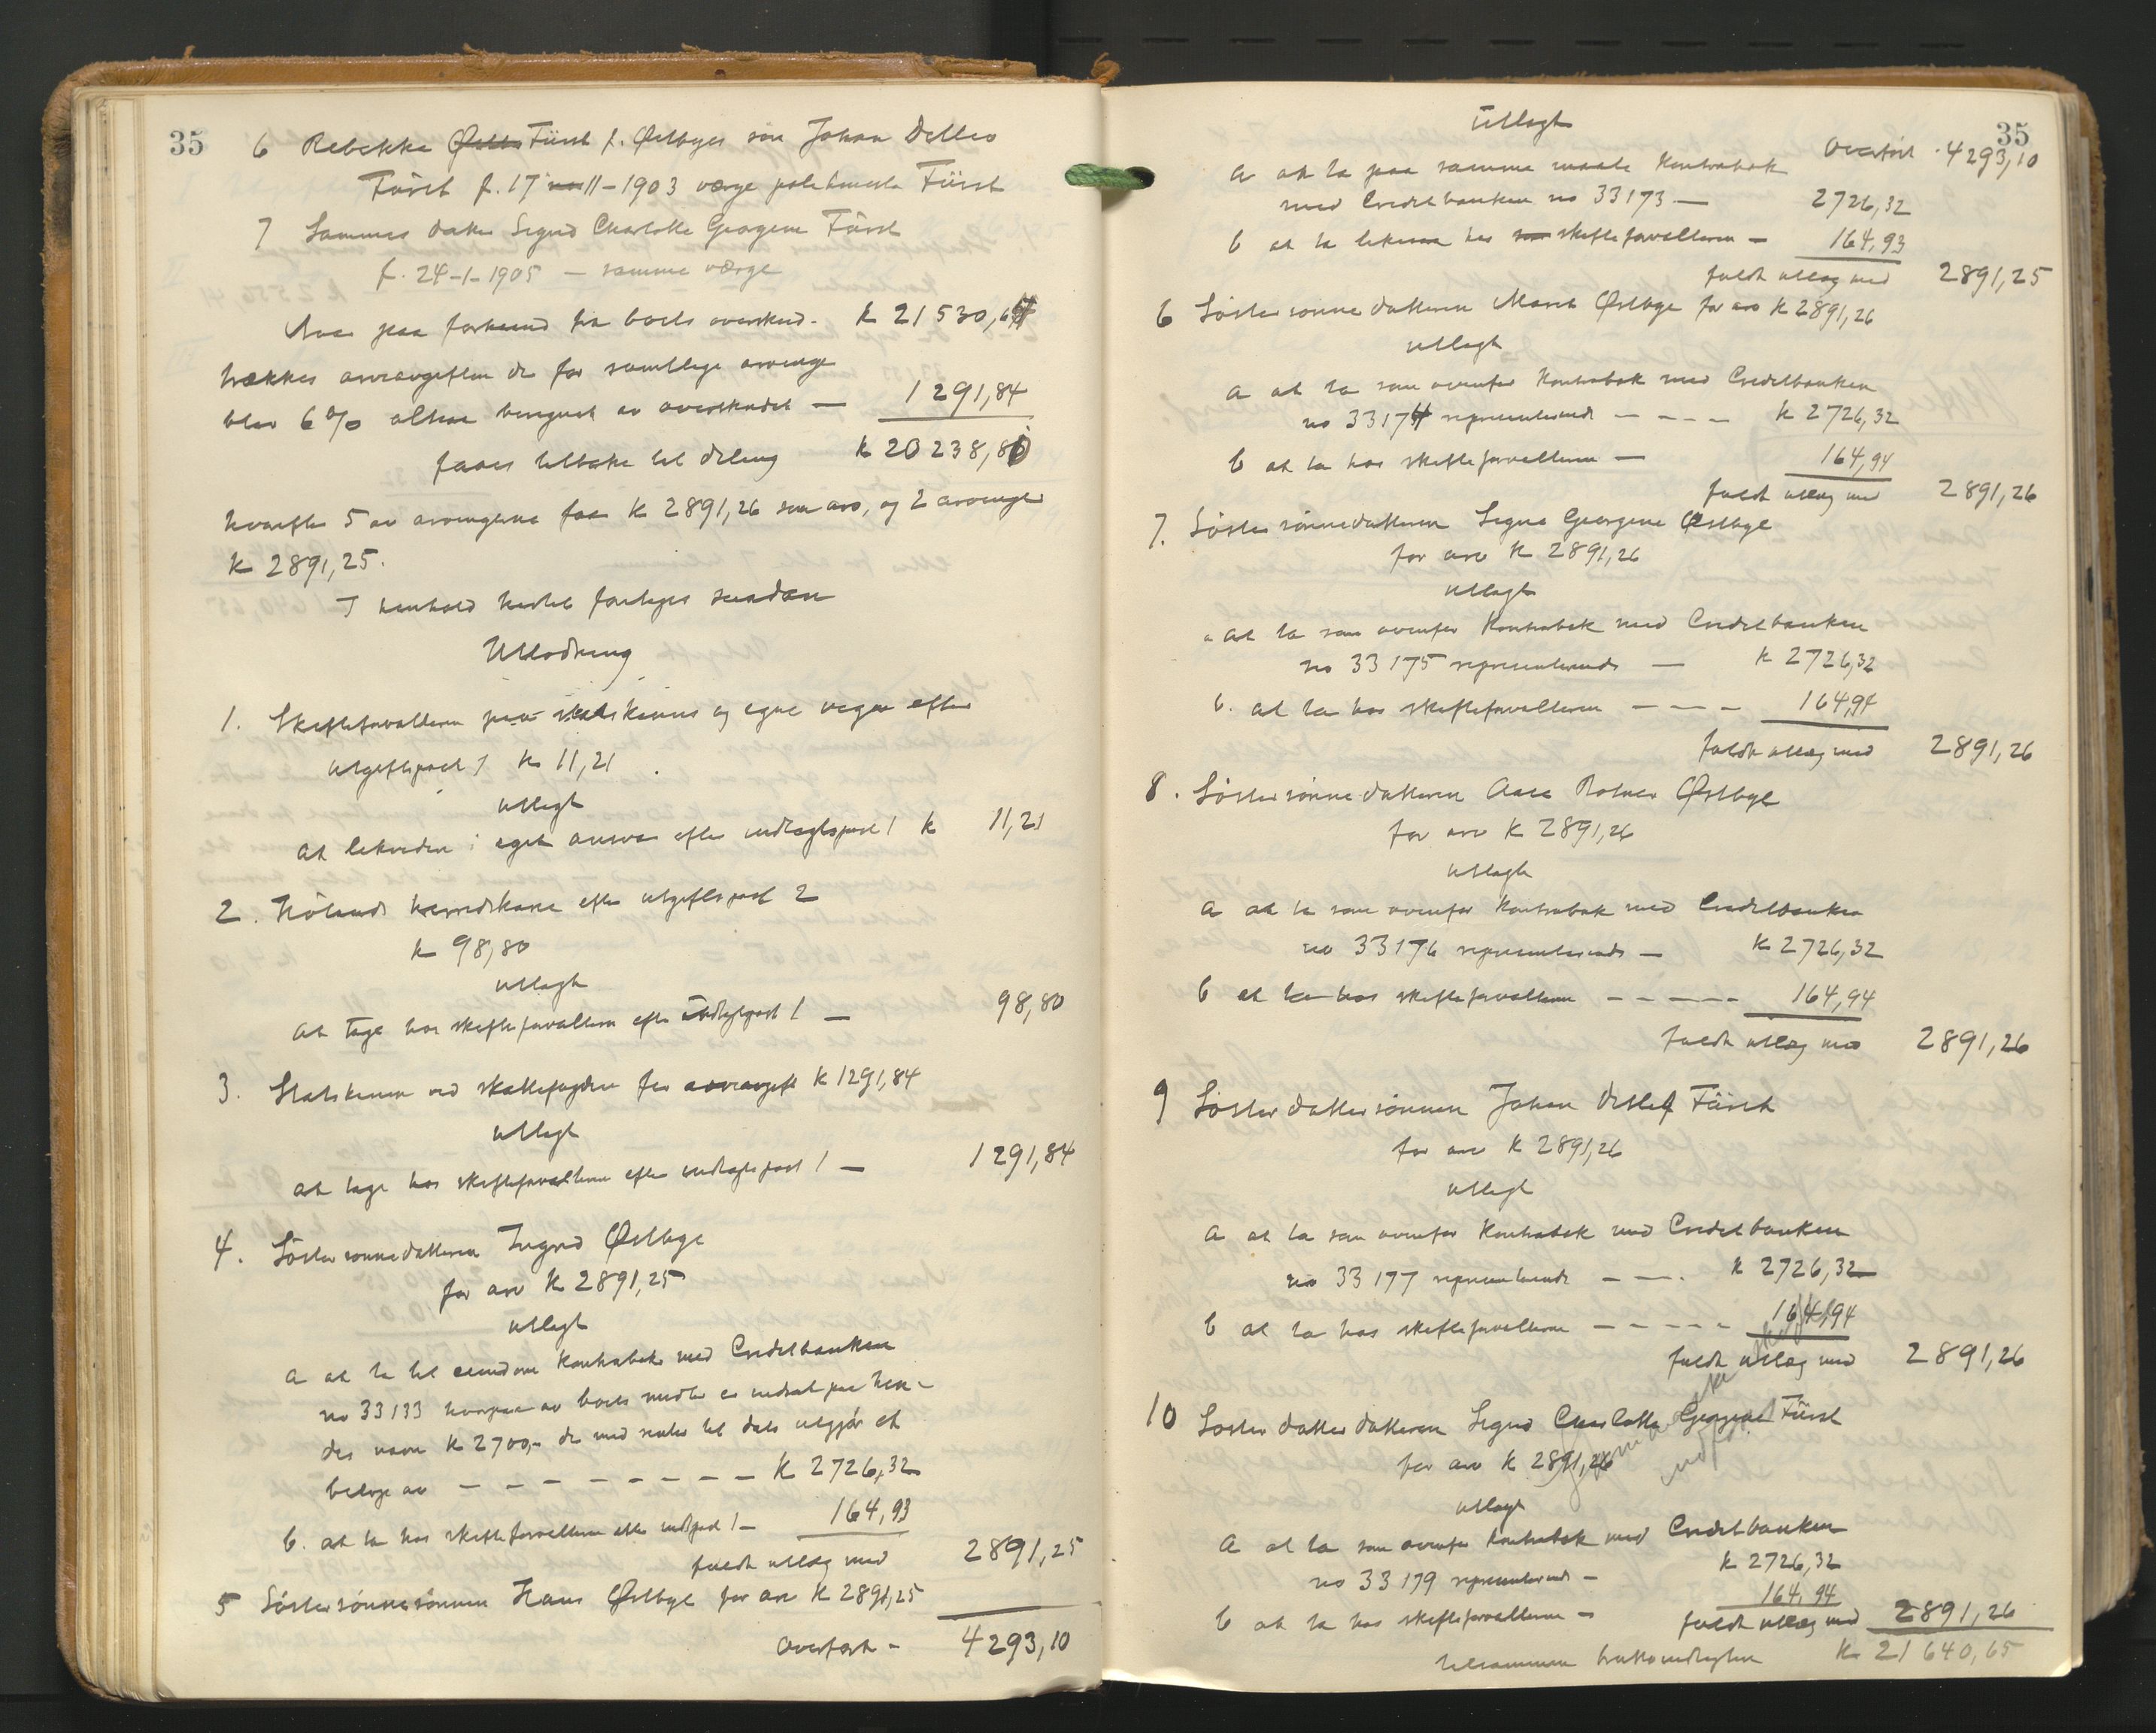 35
6 Rebekke Fürst f. Østbyes søn Johan Detlev
Fürst f. 17 11-1903 værge Fürst
7 Sammes datter Sigrid Charlotte Georgine Fürst
f. 24-1-1905 – samme værge
paa forhaand fra boets overskud - k 21530,64
trækkes arveavgiften der for samtlige arvinger
blir 6% altsaa beregnet av overskudet — 1291,84
faaes tilbake til deling k 20238,80
hvorefter 5 av arvingerne faar k 2891,26 som arv, og 2 arvinger
k 2891,25.
I henhold hertil foretages saadan
Utlodning
1. Skifteforvalteren paa statskassens og egne vegne efter
utgiftspost 1 k 11,21
utlagt
At likvidere i eget ansvar efter indtægtspost 1 k 11,21
2. Hölands herredskasse efter utgiftspost 2
k 98,80
utlagt
At tage hos skifteforvalteren efter indtægtspost 1 — 98,80
3. Statskassen ved skattefogden for arveavgift k 1291,84
utlagt
at tage hos skifteforvalteren efter indtægtspost 1 — 1291,84
4. Søstersønnedatteren Ingrid Østbye
for arv k 2891,25
utlagt
a at ta til eiendom Kontrabok med Creditbanken
no 33133 hvorpaa av boets midler er indsat paa hen-
des navn k 2700,- der med renter til dato utgjør et
beløp av — — — — — — — — k 2726,32
b. at ta hos skifteforvalteren efter indtpost 1 — 164,93
fuldt utlæg med 2891,25
5 Søstersønnesønnen Hans Østbye for arv k 2891,25
Overført - 4293,10
35
Utlagt
Overført 4293,10
a at ta paa samme maate Kontrabok
med Creditbanken no 33173 — 2726,32
b at ta likesaa hos skifteforvalteren — 164,93
fuldt utlæg med 2891,25
6 Søstersønnedatteren Marit Østbye for arv k 2891,26
utlagt
a at ta som ovenfor Kontrabok med Creditbanken
no 33174 representerende - - - - k 2726,32
b at ta hos skifteforvalteren — 164,94
fuldt utlæg med 2891,26
7. Søstersønnedatteren Signe Georgine Østbye
for arv k 2891,26
utlagt
a at ta som ovenfor Kontrabok med Creditbanken
no 33175 representerende — k 2726,32
b. at ta hos skifteforvalteren - - - - 164,94
fuldt utlæg med 2891,26
8. Søstersønnedatteren Aase Østbye
for arv k 2891,26
utlagt
a at ta som ovenfor Kontrabok med Creditbanken
no 33176 representerende — k 2726,32
b at ta hos skifteforvalteren - - - - - 164,94
fuldt utlæg med 2891,26
9 Søsterdattersønnen Johan Detlef Fürst
for arv k 2891,26
utlagt
a at ta som ovenfor Kontrabok med Creditbanken
no 33177 representerende - - - k 2726,32
b at ta hos skifteforvalteren - - - - - 164,94
fuldt utlæg med 2891,26
10 Søsterdatterdatteren Sigrid Charlotte Georgine Fürst
for arv k 2891,26
utlagt
a at ta som ovenfor Kontrabok med Creditbanken
no 33179 representerende — k 2726,32
b at ta hos skifteforvalteren — 164,94
fuldt utlæg med 2891,26
tilsammen bruttoindtægten k 21640,65